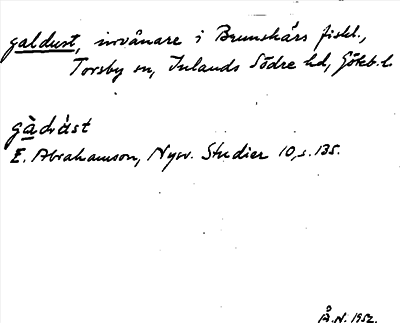 galdust, invånare i Brunskärs fiskl.,
Torsby sn, Inlands Södre hd, Göteb.l.
gàdɩ̀st
E. Abrahamson, Nysv. Studier 10, s. 135.
Å.N. 1952.